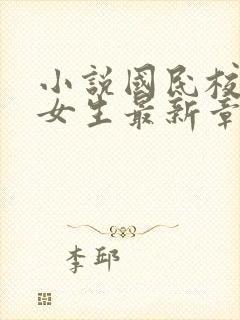 小說國民校
女生最新章
李邱